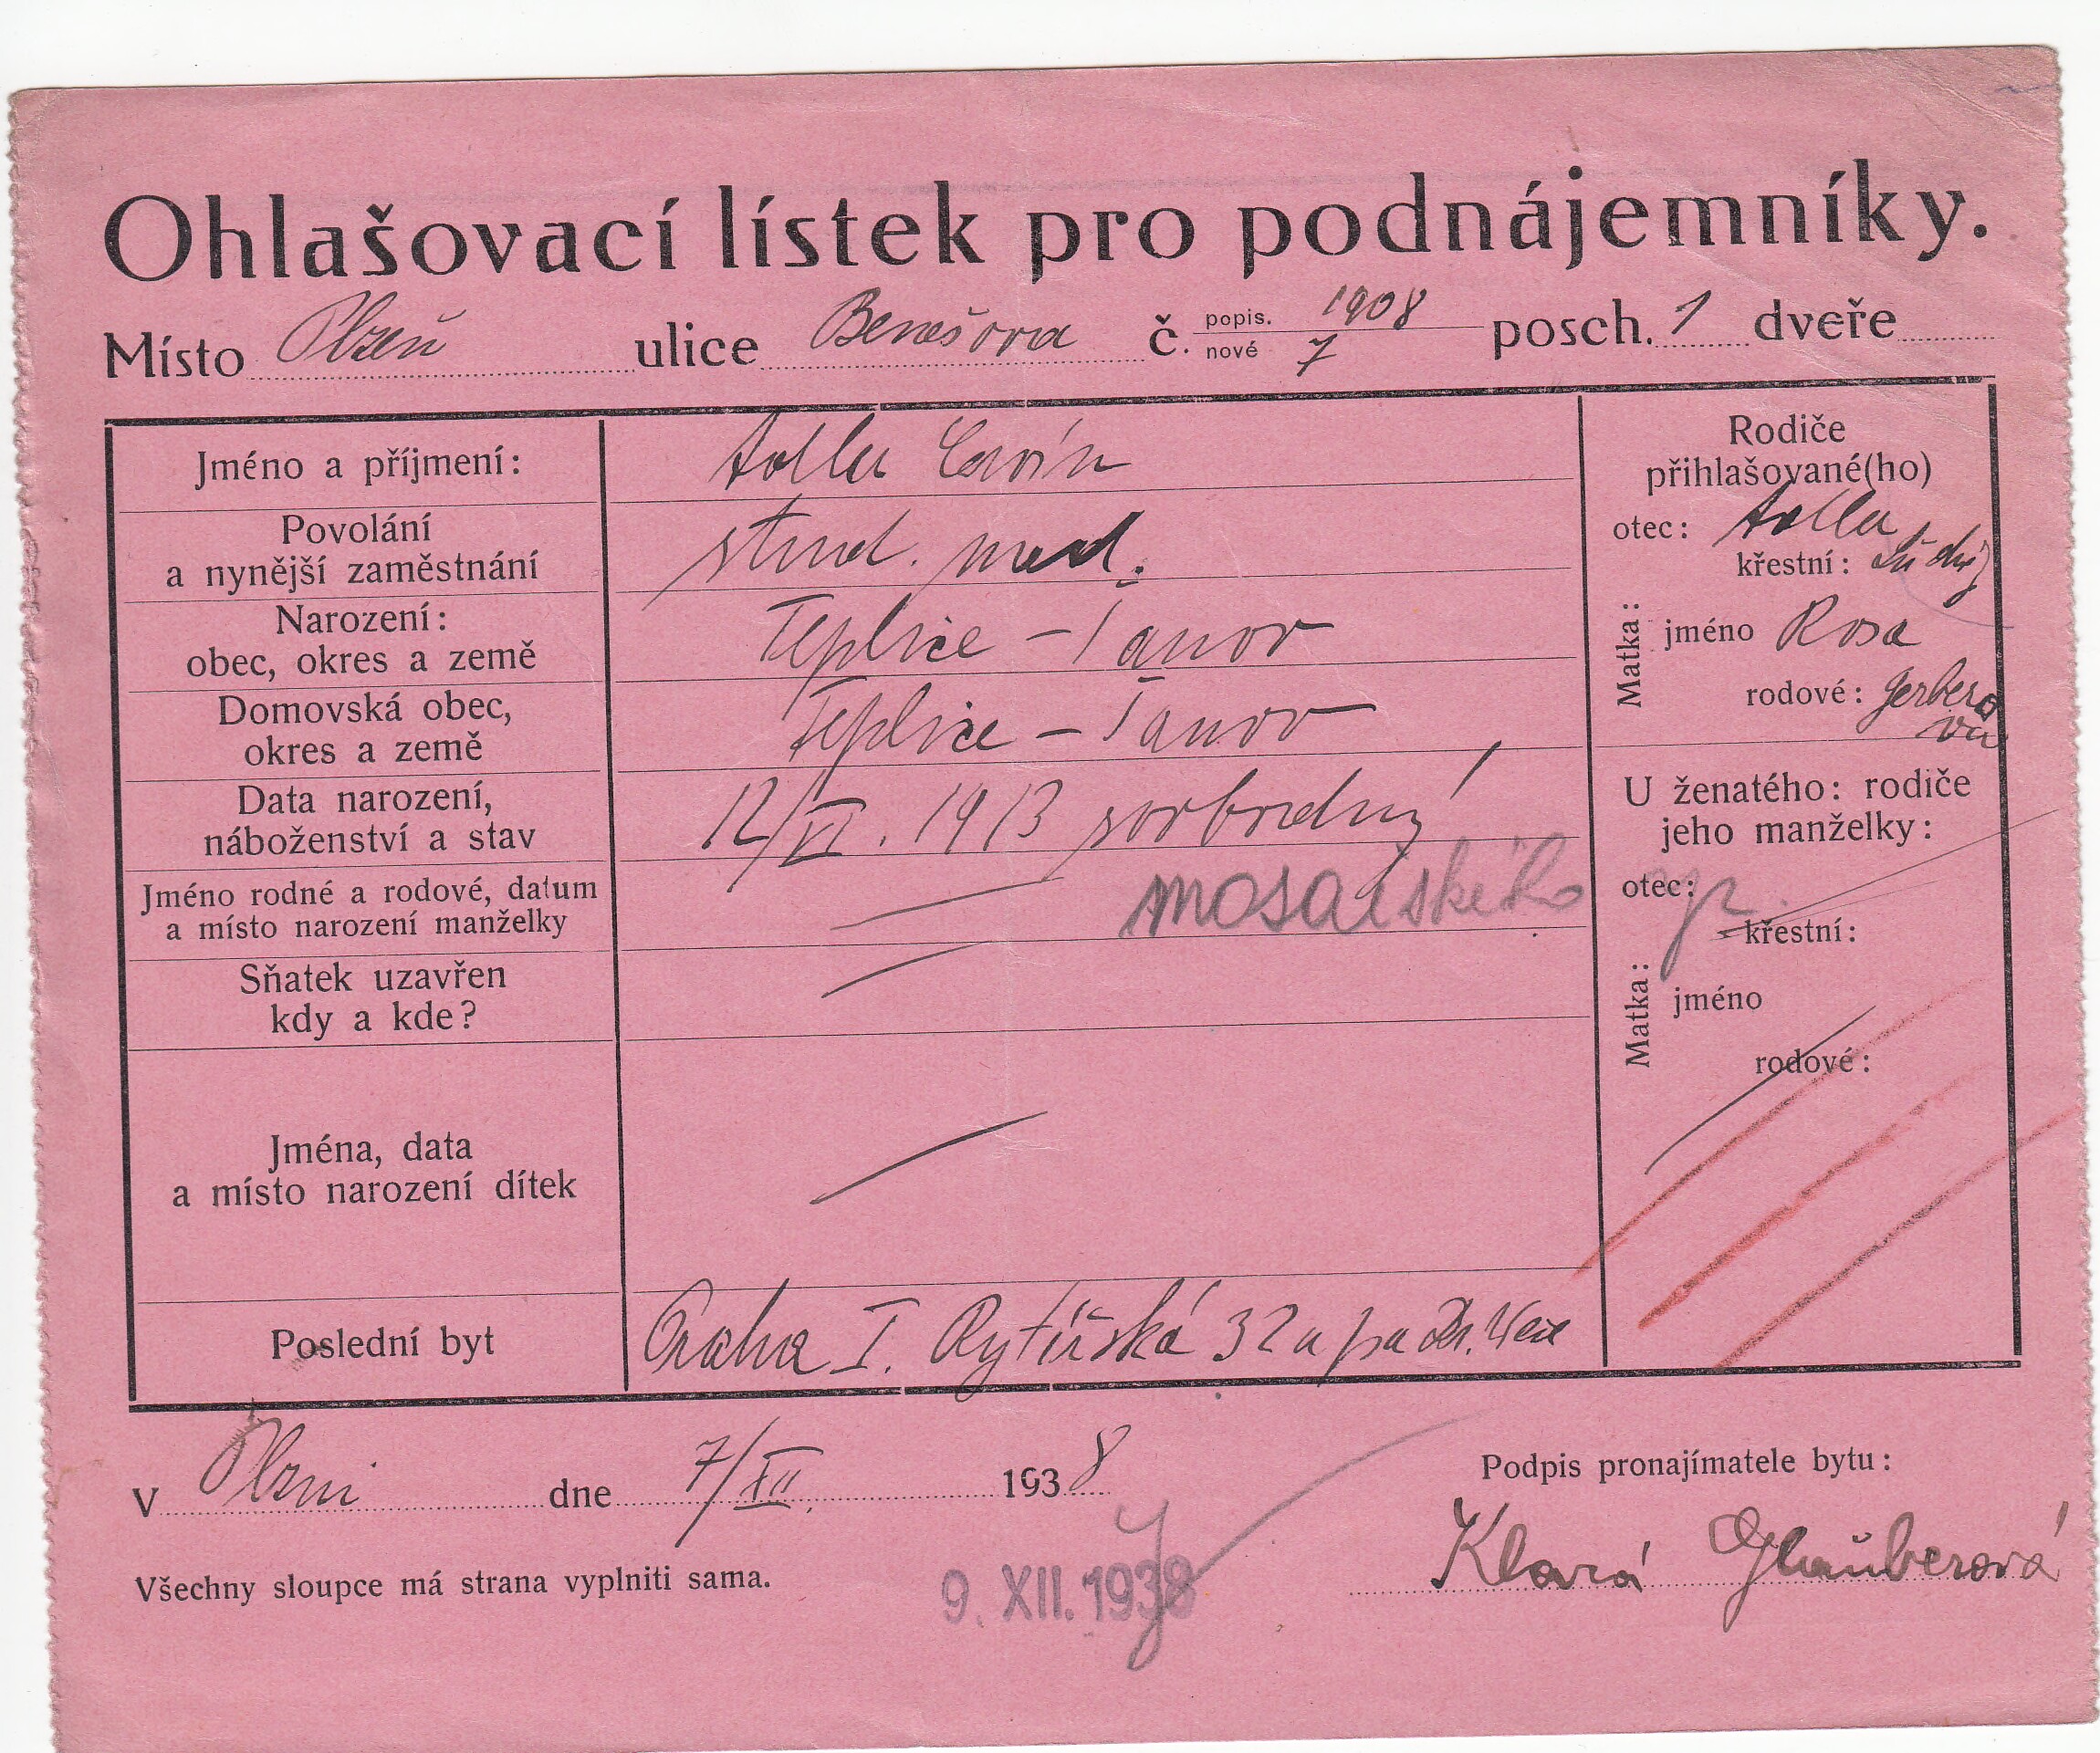 Ohlašovací lístek pro podnájemníky.
Místo Plzeň ulice Benešova č. popis. 1908 nové 7 posch. 1 dveře
Jméno a příjmení:
Povolání
a nynější zaměstnání
stud. med.
Narození:
obec, okres a země
Teplice – Šanov
Domovská obec,
okres a země
Teplice – Šanov
Data narození,
náboženství a stav
12/VI. 1913 svobodný
mosaiského
Jméno rodné a rodové, datum
a místo narození manželky
Sňatek uzavřen
kdy a kde?
Jména, data
a místo narození dítek
Poslední byt
Praha I. Rytířská 32 u pa Dr.
Rodiče
přihlašované(ho)
otec:
křestní:
Matka:
jméno Rosa
rodové: Gerbero
vá
U ženatého: rodiče
jeho manželky:
otec:
křestní:
Matka:
jméno
rodové:
V Plzni dne 7/XII. 1938
Podpis pronajímatele bytu:
Klará Glauberová
Všechny sloupce má strana vyplniti sama.
9. XII. 1938